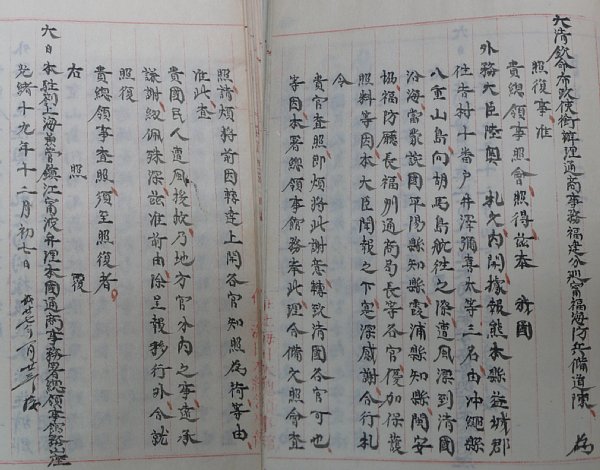 大清欽命布政使銜辦理通商事務福建分巡甯福海防兵備道陳 為
照復事准
貴總領事照會照得茲奉我國
外務大臣陸奧 札文內開據報熊本縣益城郡
住吉村十番戶井澤彌喜太等三名由沖繩縣
八重山島向胡馬島航往之際遭風漂到清國
沿海當蒙該國平陽縣知縣霞浦縣知縣閩安
協福防廳長福州通商局長等各官優加保護
照料等因本大臣閱報之下寔深感謝合行札
令
貴官查照即煩將此謝意轉致清國各官可也
等因本署總領事館務奉此理合備文照會查
照請煩將前因轉達上開各官知照為荷等由
准此查
貴國民人遭風援救乃地方官分內之事遠承
謙謝紉佩殊深茲准前由除呈報移行外合就
照復
貴總領事查照須至照復者
右 照 復
大日本駐劄上海兼管鎮江甯波辦理本國通商事務署總領事館務山座
光緒十九年十二月初七日